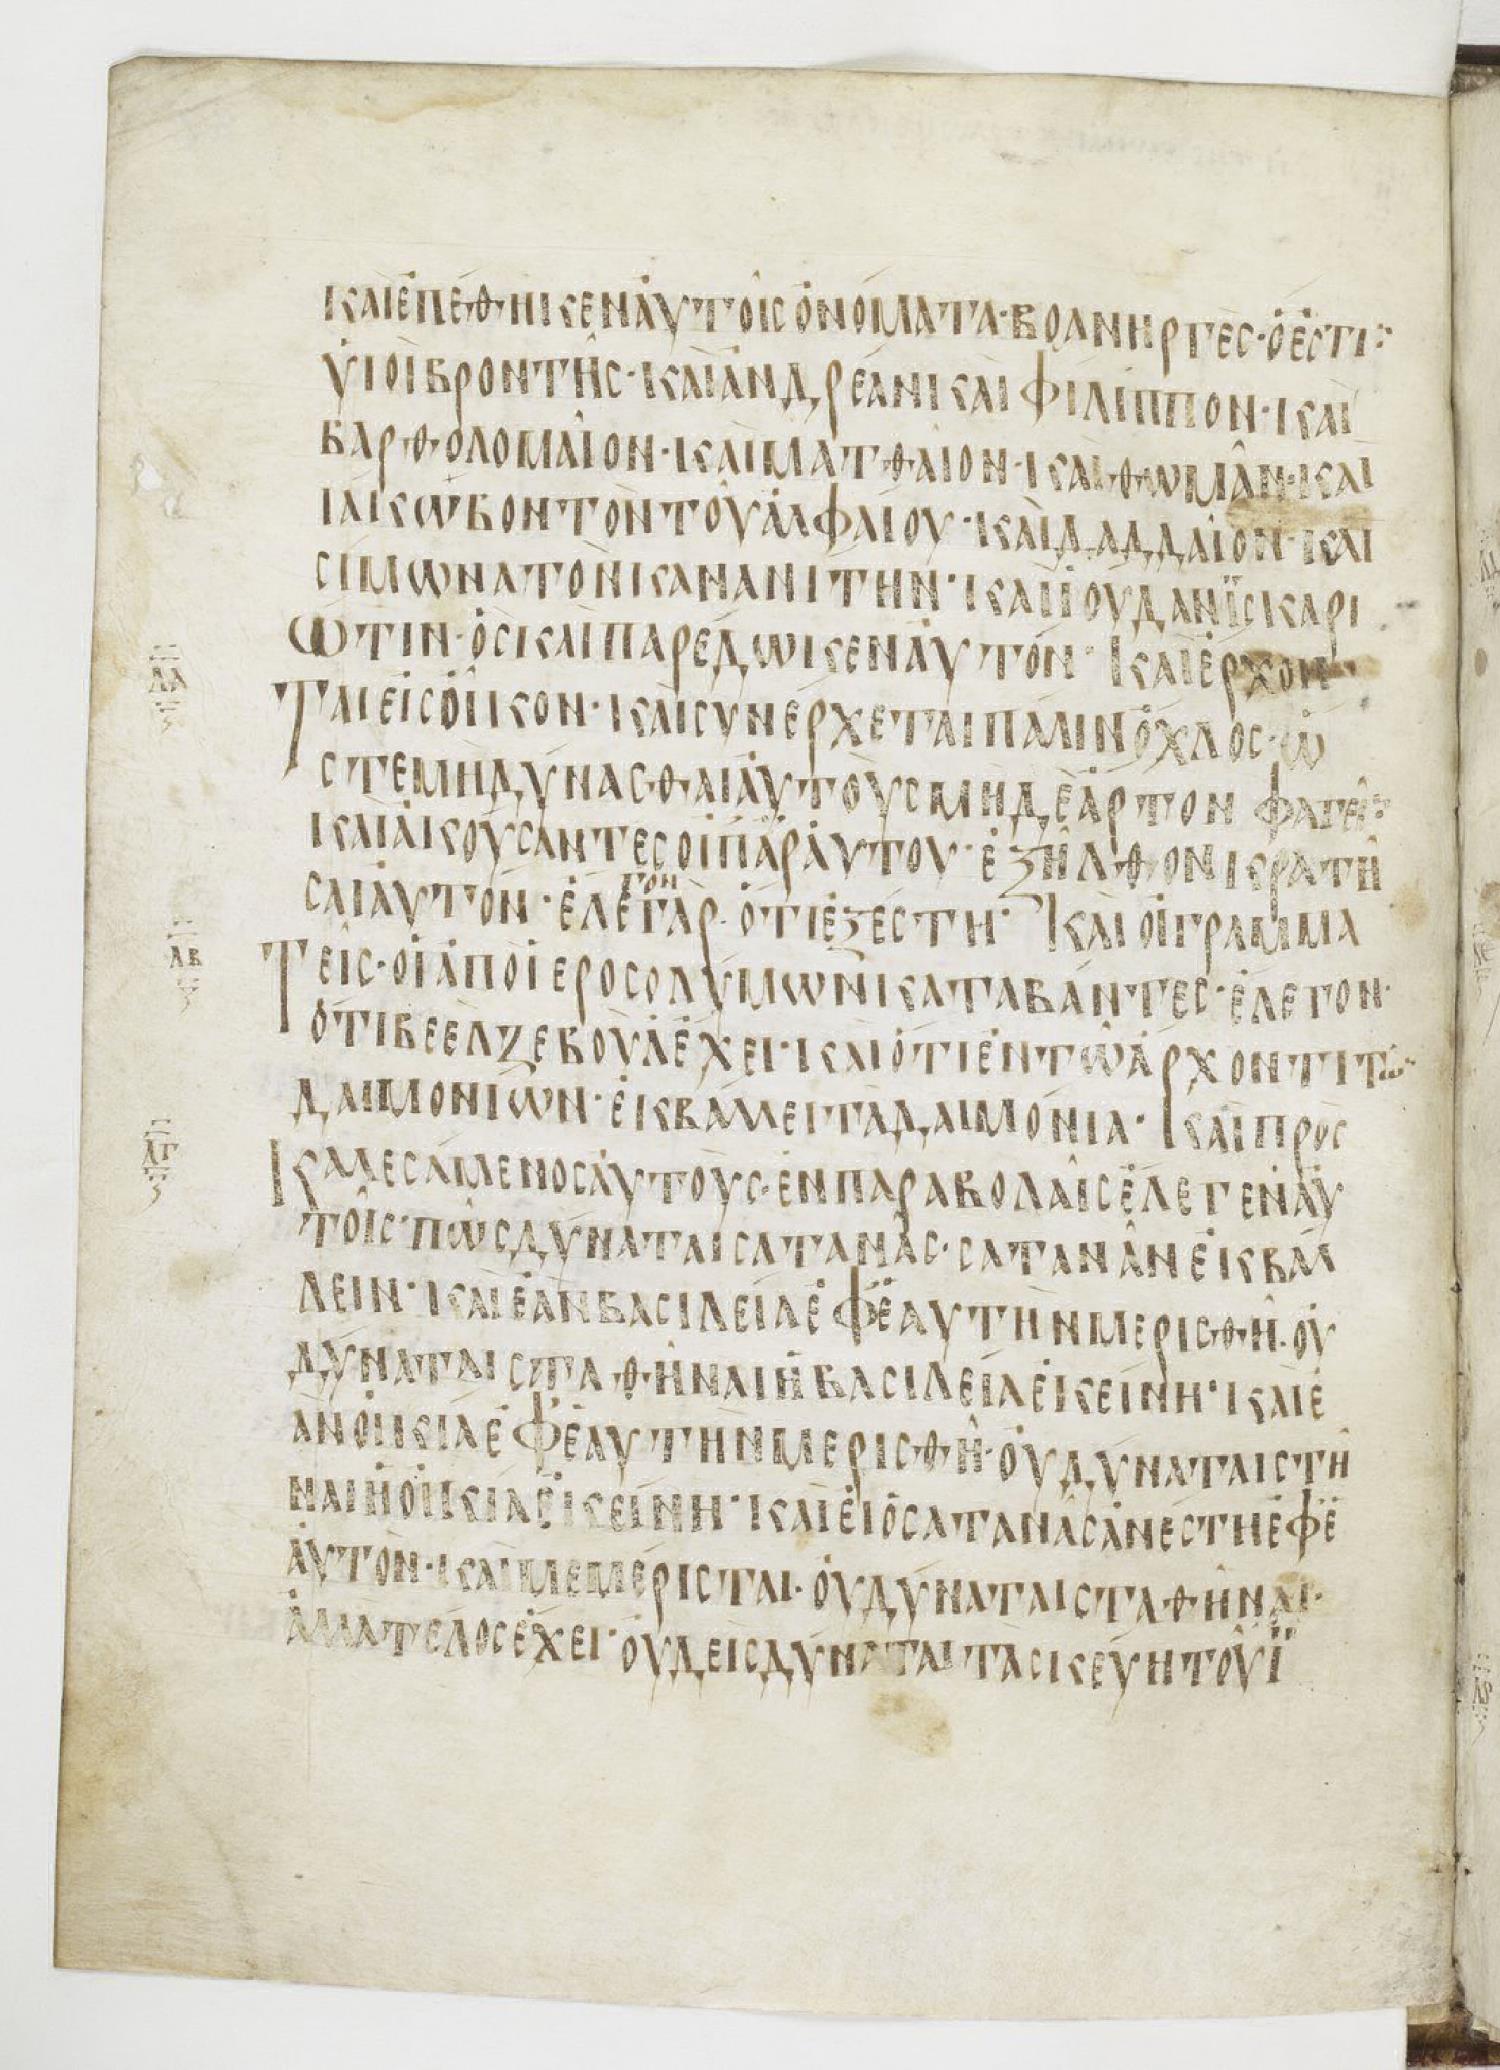 ΚΑῚἘΠΈΘΗΚΕΝΑΥ̓ΤΟΙ͂ΣὈΝΌΜΑΤΑ·ΒΟΑΝΗΡΓῈΣ·ὍἘΣΤΙ:
ΥἹΟῚΒΡΟΝΤΗ͂Σ·ΚΑῚἈΝΔΡΈΑΝΚΑΙΦΊΛΙΠΠΟΝ·ΚΑῚ
ΒΑΡΘΟΛΟΜΑΙ͂ΟΝ·ΚΑῚΜΑΤΘΑΙΟΝ·ΚΑῚΘΩΜΑ͂Ν·ΚΑΙ
ἸΆΚΩΒΟΝΤῸΝΤΟΥ͂ἈΛΦΑΊΟΥ·ΚΑῚΔΑΔΔΑΙΟΝ·ΚΑΙ
ΣΊΜΩΝΑΤῸΝΚΑΝΑΝΊΤΗΝ·ΚΑῚΪΟΥΔΑΝΪΣΚΑΡΙ
ΏΤΙΝ·ὋΣΚΑῚΠΑΡΈΔΩΚΕΝΑΥ̓ΤΌΝ· ΚΑῚἜΡΧΟΝ
ΤΑΙΕἸΣΟἾΚΟΝ·ΚΑῚΣΥΝΈΡΧΕΤΑΙΠΆΛΙΝὌΧΛΟΣ·Ὥ
ΣΤΕΜῊΔΎΝΑΣΘΑΙΑΥ̓ΤΟῪΣΜΗΔῈἌΡΤΟΝ ΦΑΓΕΙ͂:
ΚΑῚἈΚΟΎΣΑΝΤΕΣΟἹΠΑΡΑΥ̓ΤΟΥ·ἘΞΗ͂ΛΘΟΝΚΡΑΤΗ͂
ΣΑΙΑΥ̓ΤΌΝ·ἜΛΕΓΟΝΓᾺΡ·ὍΤΙἘΞΈΣΤΗ· ΚΑῚΟἹΓΡΑΜΜΑ
ΤΕΙ͂Σ·ΟἹἈΠῸἹΕΡΟΣΟΛΎΜΩΝΚΑΤΑΒΆΝΤΕΣ·ἜΛΕΓΟΝ·
ὍΤΙΒΕΕΛΖΕΒΟῪΛἜΧΕΙ·ΚΑΙὍΤΙἘΝΤΩ͂ἌΡΧΟΝΤΙΤΩ͂
ΔΑΙΜΟΝΊΩΝ·ἘΚΒΆΛΛΕΙΤΑΔΑΙΜΌΝΙΑ· ΚΑῚΠΡΟΣ
ΚΑΛΕΣΆΜΕΝΟΣΑΥ̓ΤΟῪΣ·ἘΝΠΑΡΑΒΟΛΑΙ͂ΣἜΛΕΓΕΝΑΥ̓
ΤΟΙ͂Σ·ΠΩ͂ΣΔΎΝΑΤΑΙΣΑΤΑΝΑ͂Σ·ΣΑΤΑΝΑ͂ΝἘΚΒΆΛ
ΛΕΙΝ·ΚΑῚἘᾺΝΒΑΣΙΛΕΊΑἘΦἙΑΥΤῊΝΜΕΡΙΣΘΗ͂·ΟΥ̓
ΔΎΝΑΤΑΙΣΤΑΘΗ͂ΝΑΙἩΒΑΣΙΛΕΊΑἘΚΕΊΝΗ·ΚΑῚἘ
ᾺΝΟἸΚΊΑἘΦἙΑΥΤῊΝΜΕΡΙΣΘΗ͂·ΟΥ̓ΔΎΝΑΤΑΙΣΤΗ͂
ΝΑΙἩΟἸΚΊΑἘΚΕΊΝΗ·ΚΑῚΕἸὉΣΑΤΑΝΑ͂ΣἈΝΈΣΤΗἘΦἙ
ΑΥΤῸΝ·ΚΑῚΜΕΜΈΡΙΣΤΑΙ·ΟΥ̓ΔΎΝΑΤΑΙΣΤΑΘΗ͂ΝΑΙ·
ἈΛΛᾺΤΈΛΟΣἜΧΕΙ·ΟΥ̓ΔΕῚΣΔΎΝΑΤΑΙΤᾺΣΚΕΎΗΤΟΥ͂Ϊ
ΛΑ
ΛΒ
ΛΓ